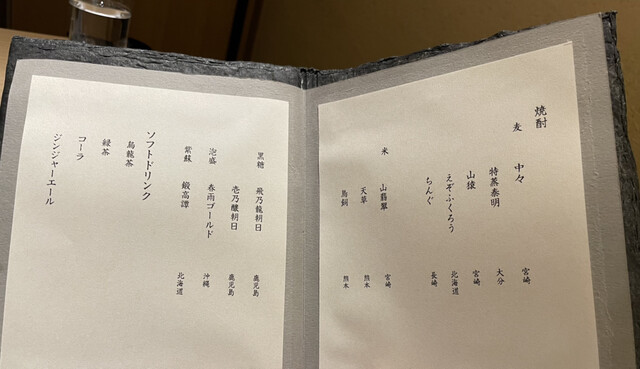 焼酎
麦 中々 宮崎
特蒸泰明 大分
山猿 宮崎
えぞふくろう 北海道
ちんぐ 長崎
米 山翡翠 宮崎
天草 熊本
鳥飼 熊本
黒糖 飛乃龍朝日 鹿児島
壱乃醸朝日 鹿児島
泡盛 春雨ゴールド 沖縄
紫蘇 鍛高譚 北海道
ソフトドリンク
烏龍茶
緑茶
コーラ
ジンジャーエール